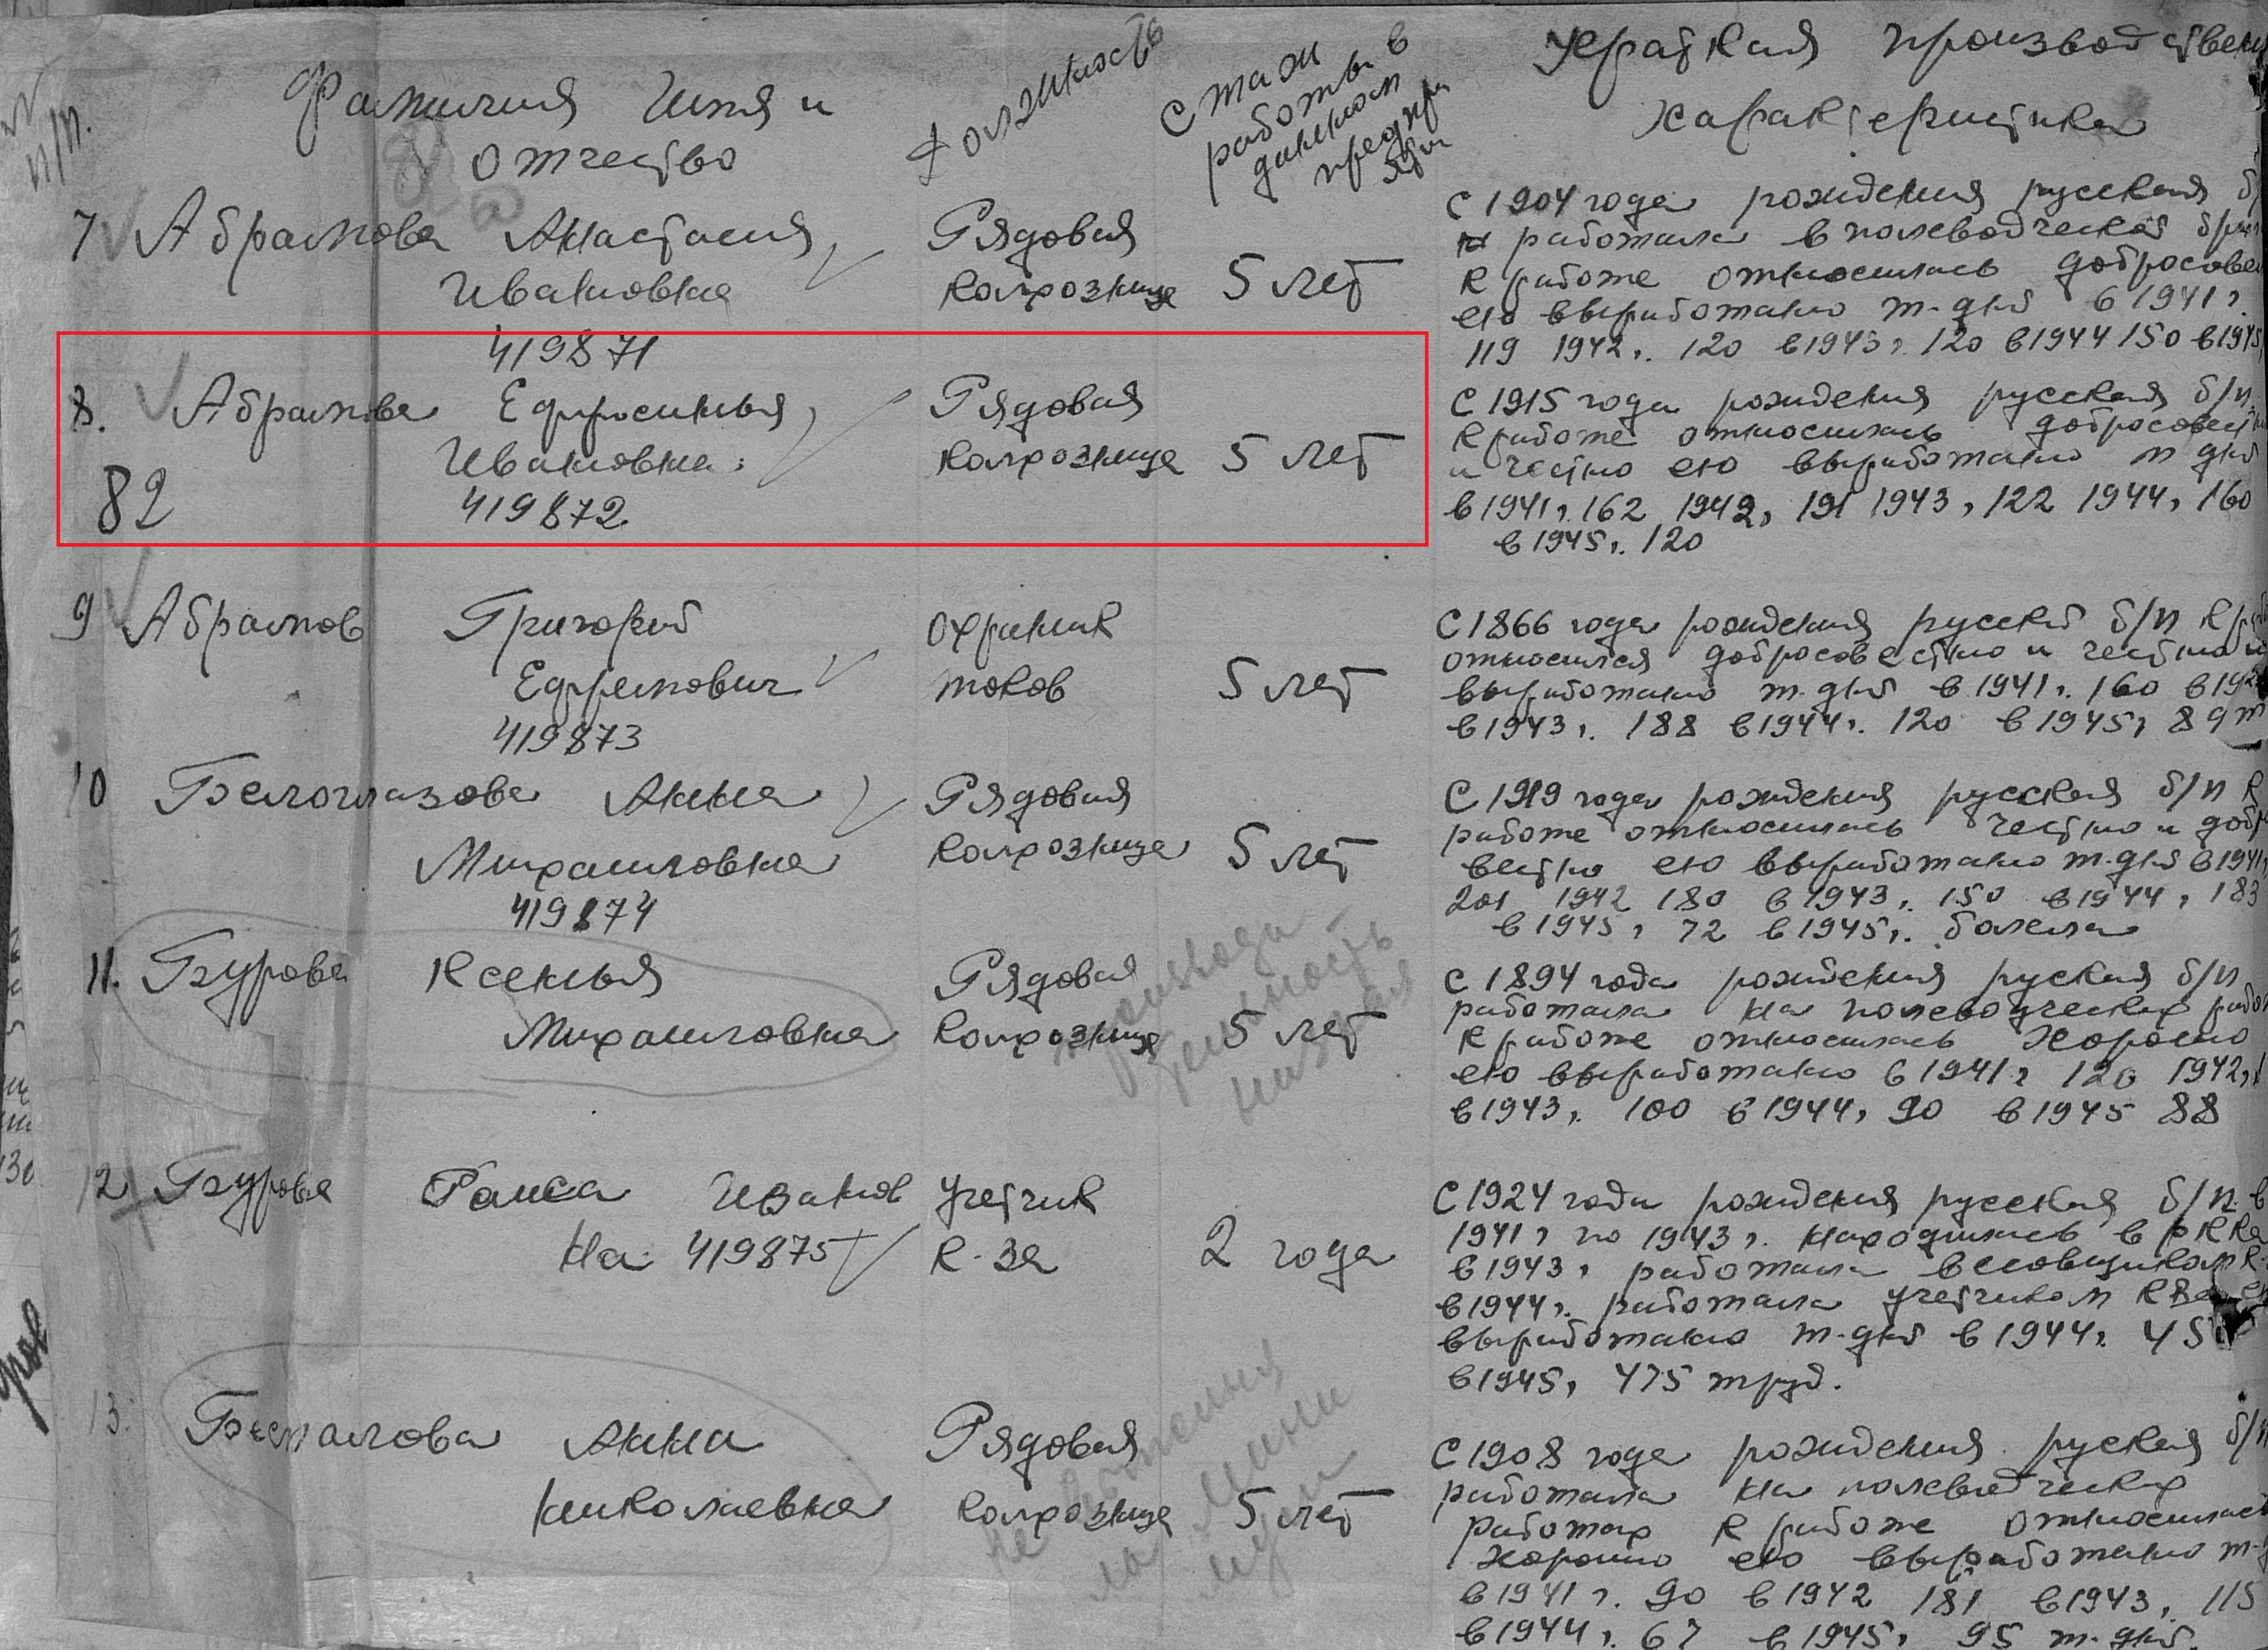 №
п/п.
Фамилия Имя и
отчество
Должность
Стаж
работы в
данном
предпри
ятии
Краткая производствен
характеристика
7 Абрамова Анастасия
Ивановна
419871
Рядовая
колхозница
5 лет
С 1904 года рождения русская б/
работала в полеводческой бриг
к работе относилась добросовес
ею выработано т-дней в 1941 г.
119 1942 г. 120 в 1943 г. 120 в 1944 150 в 1945
8. Абрамова Ефросинья
Ивановна
82 419872
Рядовая
колхозница
5 лет
С 1915 года рождения русская б/п.
к работе относилась добросовест
и честно ею выработано т дней
в 1941 г. 162 1942 г 191 1943 г 122 1944 г 160
в 1945 г. 120
9 Абрамов Григорий
Ефремович
419873
охранник
токов
5 лет
С 1866 года рождения русский б/п к ра
относился добросовестно и честно и
выработано т-дней в 1941 г. 160 в 1942
в 1943 г. 188 в 1944 г. 120 в 1945 г 89 т
10 Белоглазова Анна
Михайловна
419874
Рядовая
колхозница
5 лет
С 1919 года рождения русская б/п к
работе относилась честно и добро
вестно ею выработано т-дней в 1941 г
201 1942 180 в 1943 г. 150 в 1944 г 183
в 1945 г 72 в 1945 г. болела
11. Бурова Ксенья
Михайловна
Рядовая
колхозница
5 лет
производи
тельность
низкая
С 1894 года рождения руская б/п
работала на полеводческих работ
к работе относилась хорошо
ею выработано в 1941 г 120 1942 г
в 1943 г. 100 в 1944 г 90 в 1945 88
12 Бурова Раиса Иванов
на 419875
Учетчик
к-за
2 года
С 1924 года рождения русская б/п. в
1941 г по 1943 г. находилась в РККА
в 1943 г работала весовщиком к-
в 1944 г. работала учетчиком
выработано т-дней в 1944 г. 45
в 1945 г 475 труд.
13. Беспалова Анна
Николаевна
Рядовая
колхозница
5 лет
мини
мум
С 1908 года рождения руская б/п
работала на полеводческих
работах к работе относилас
хорошо ею выработано т-
в 1941 г. 90 в 1942 181 в 1943 г. 115
в 1944 г. 67 в 1945 г 95 т-дней